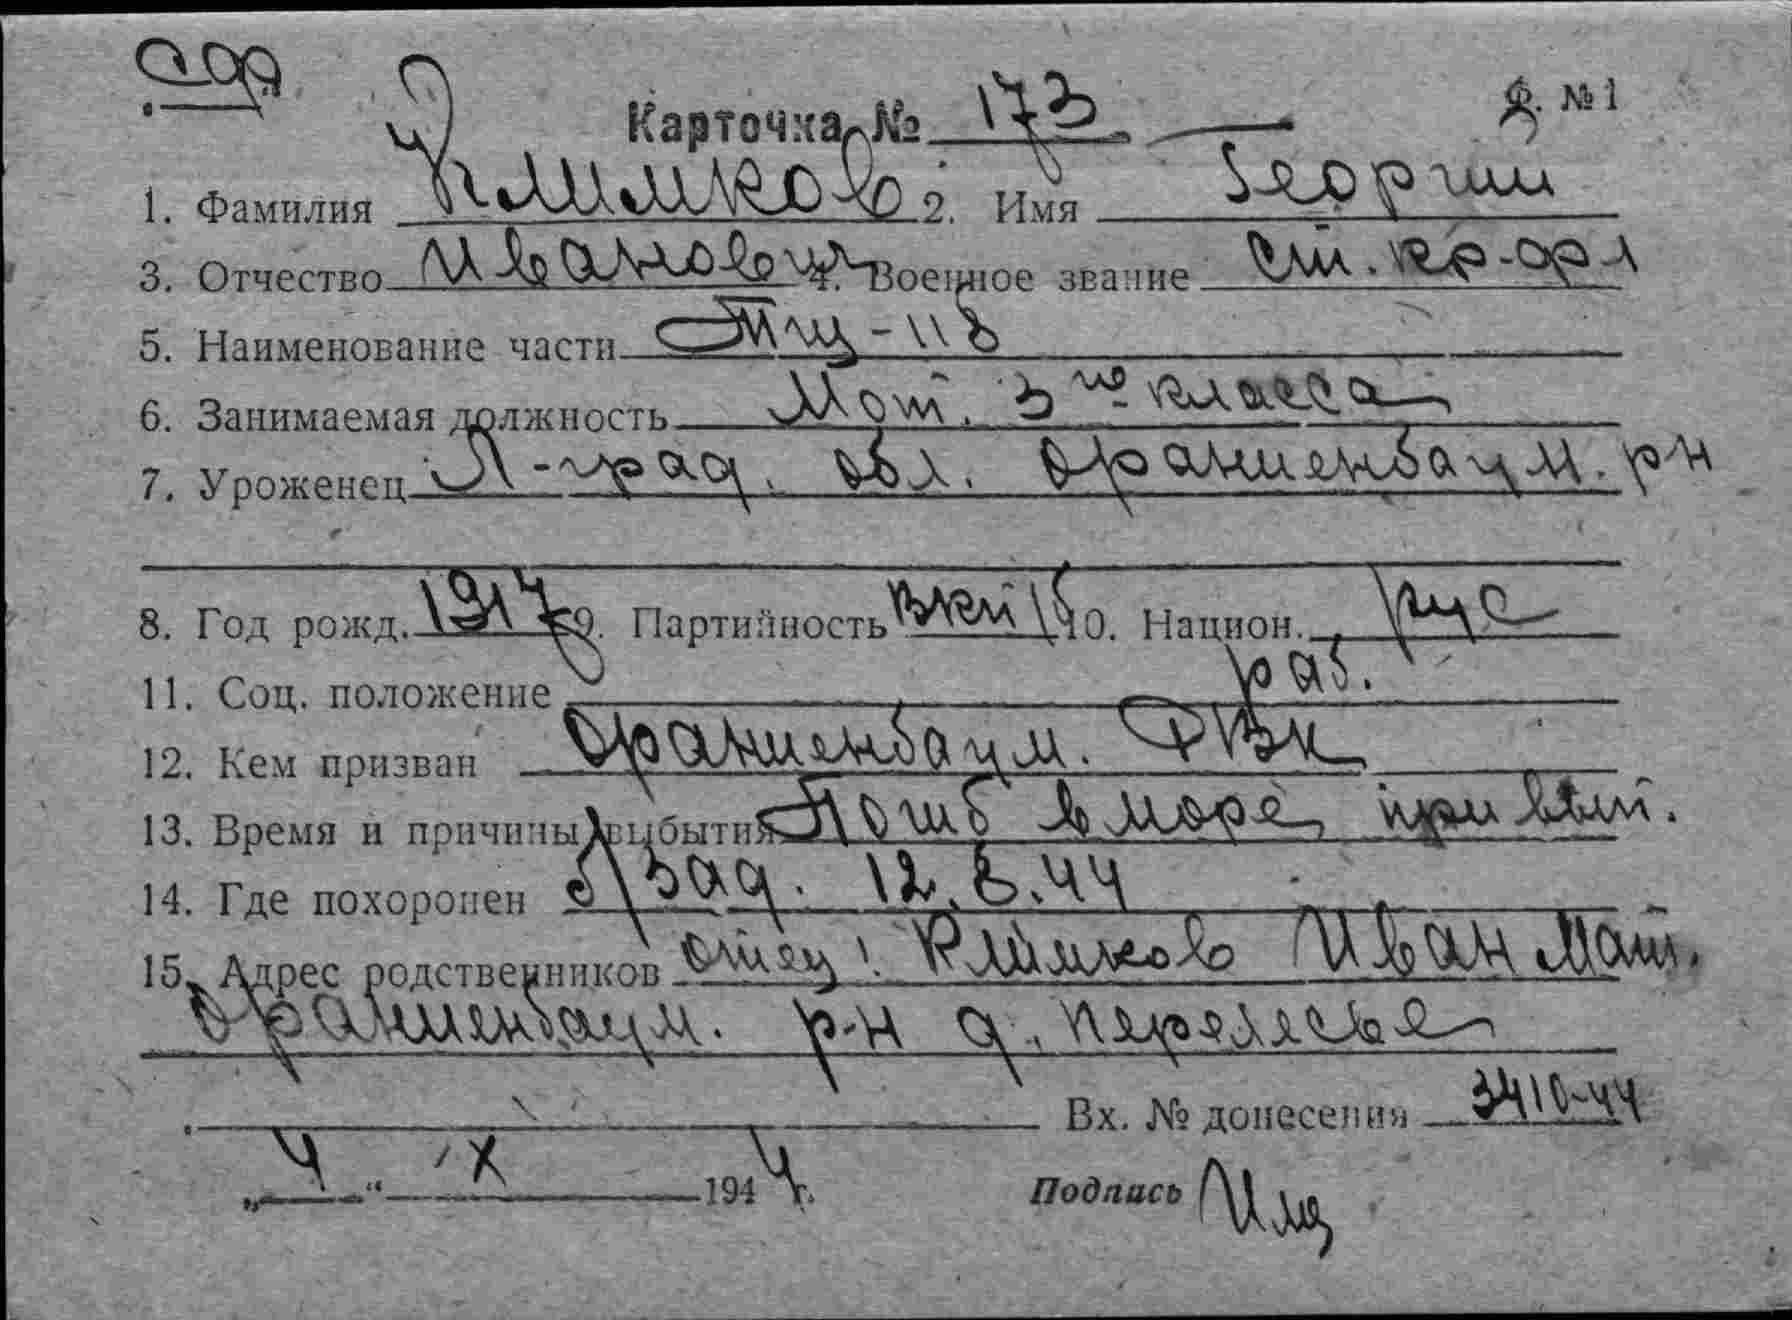 Карточка № 173 Ф. №1
1. Фамилия Климков 2. Имя Георгий
3. Отчество Иванович 4. Военное звание Ст. кр-фл
5. Наименование части
6. Занимаемая должность Мот. 3го класса
7. Уроженец Л-град. обл. Ораниенбаум. р-н
8. Год рожд. 1917 9. Партийность ВКП/б 10. Национ. рус
11. Соц. положение раб.
12. Кем призван Ораниенбаум. РВК
13. Время и причины выбытия Погиб в море при вып.
14. Где похоронен б/зад. 12.8.44
15. Адрес родственников отец: Климков Иван Мат.
Ораниенбаум. р-н д.
Вх. № донесения 3410-44
„4“ X 1944 г. Подпись